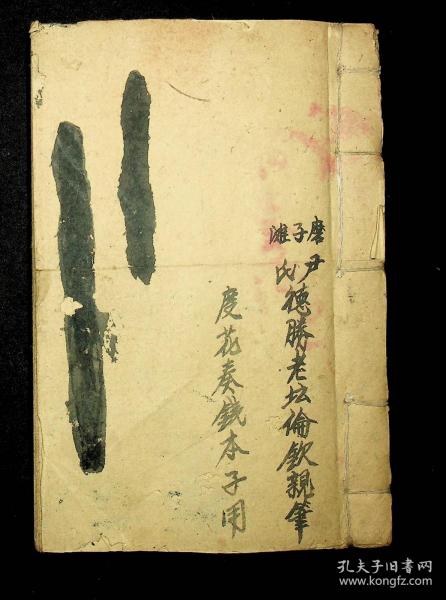 磨子滩
尹氏德勝老坛倫欽親筆
度花奏錢本子用
孔夫子旧书网
www.kongfz.com